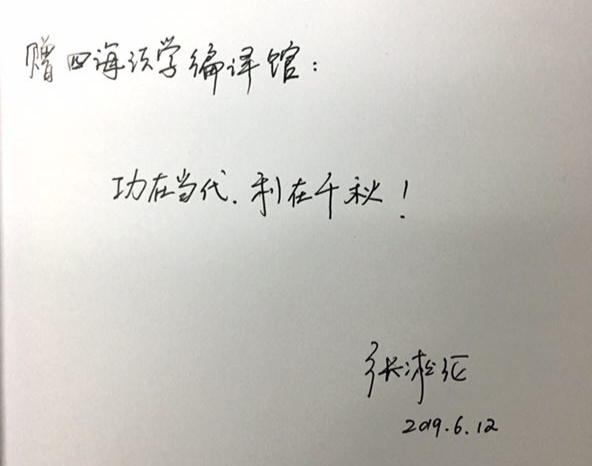 赠四海法学编译馆：
功在当代，利在千秋！
张淞纶
2019.6.12